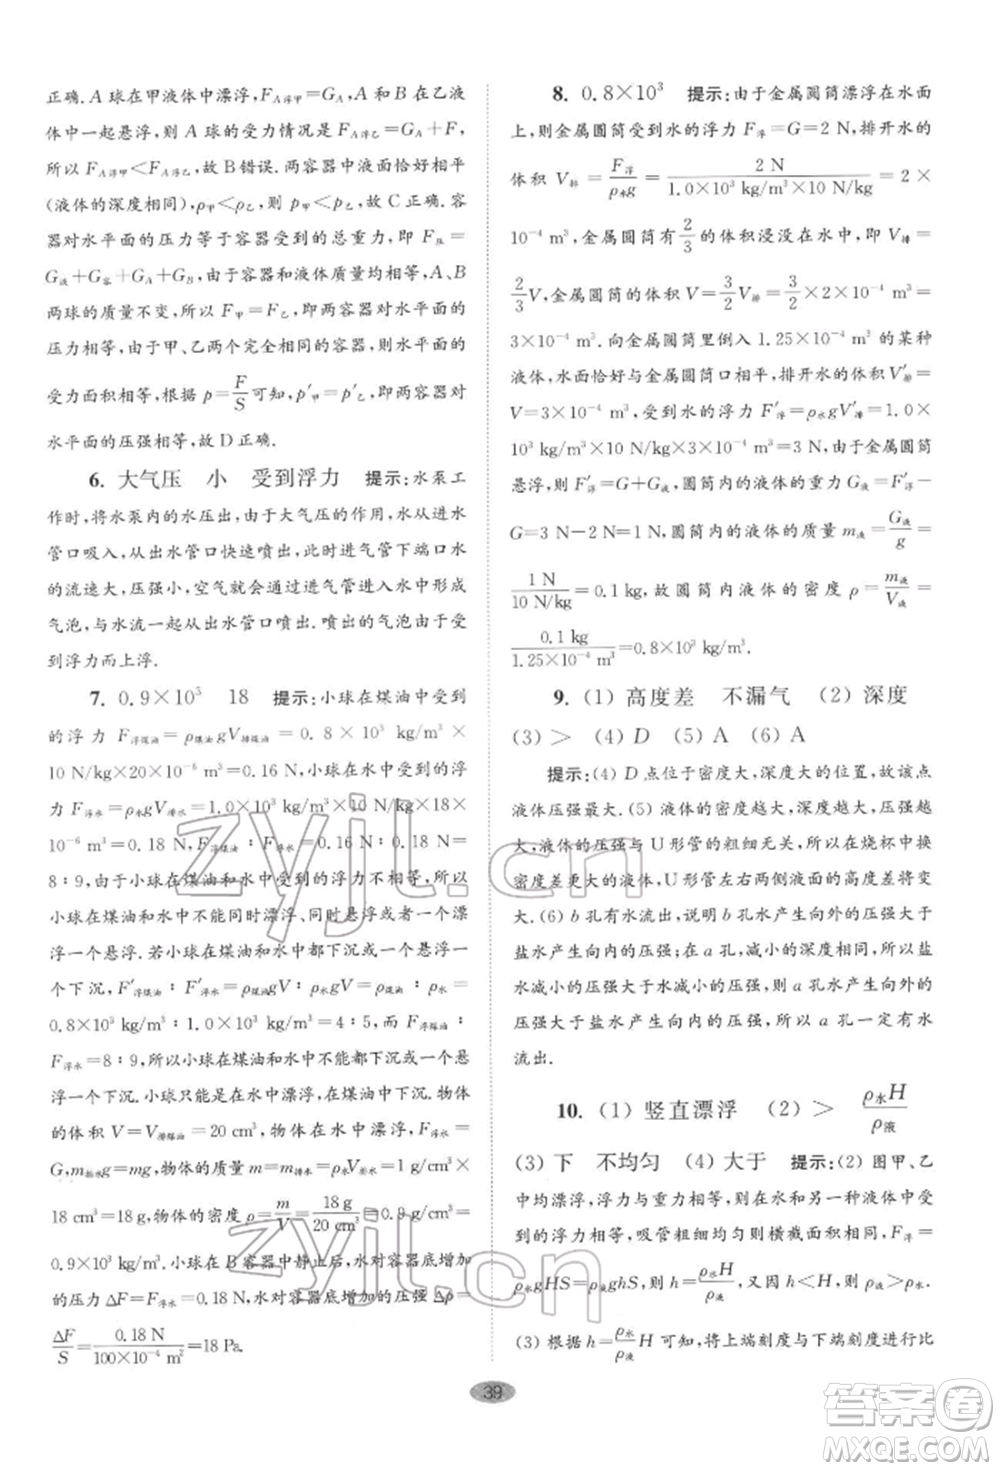 正确. A 球在甲液体中漂浮, F_A浮甲=G_A, A 和 B 在乙液
体中一起悬浮, 则 A 球的受力情况是 F_A浮乙=G_A+F,
所以 F_A浮甲<F_A浮乙, 故 B 错误. 两容器中液面恰好相平
(液体的深度相同), ρ甲<ρ乙, 则 p甲<p乙, 故 C 正确. 容
器对水平面的压力等于容器受到的总重力, 即 F压=
G液+G容+G_A+G_B, 由于容器和液体质量均相等, A、B
两球的质量不变, 所以 F甲=F乙, 即两容器对水平面的
压力相等, 由于甲、乙两个完全相同的容器, 则水平面的
受力面积相等, 根据 p=F/S 可知, p′甲=p′乙, 即两容器对
水平面的压强相等, 故 D 正确.
6. 大气压 小 受到浮力 提示: 水泵工
作时, 将水泵内的水压出, 由于大气压的作用, 水从进水
管口吸入, 从出水管口快速喷出. 此时进气管下端口水
的流速大, 压强小, 空气就会通过进气管进入水中形成
气泡, 与水流一起从出水管口喷出. 喷出的气泡由于受
到浮力而上浮.
7. 0.9×10³ 18 提示: 小球在煤油中受到
的浮力 F浮煤油=ρ煤油gV排煤油=0.8×10³ kg/m³×
10 N/kg×20×10⁻⁶ m³=0.16 N, 小球在水中受到的浮
力 F浮水=ρ水gV排水=1.0×10³ kg/m³×10 N/kg×18×
10⁻⁶ m³=0.18 N, F浮煤油∶F浮水=0.16 N∶0.18 N=
8∶9; 由于小球在煤油和水中受到的浮力不相等, 所以
小球在煤油和水中不能同时漂浮、同时悬浮或者一个漂
浮一个悬浮. 若小球在煤油和水中都下沉或者一个悬浮
一个下沉, F′浮煤油∶F′浮水=ρ煤油gV∶ρ水gV=ρ煤油∶ρ水=
0.8×10³ kg/m³∶1.0×10³ kg/m³=4∶5, 而 F浮煤油∶
F浮水=8∶9, 所以小球在煤油和水中不能都下沉或一个悬
浮一个下沉. 小球只能是在水中漂浮, 在煤油中下沉. 物体
的体积 V=V排煤油=20 cm³. 物体在水中漂浮, F浮水=
G, m排水g=mg, 物体的质量 m=m排水=ρ水V排水=1 g/cm³×
18 cm³=18 g, 物体的密度 ρ=m/V=18 g/20 cm³=0.9 g/cm³
=0.9×10³ kg/m³. 小球在 B 容器中静止后, 水对容器底增加
的压力 ΔF=F浮水=0.18 N, 水对容器底增加的压强 Δp=
ΔF/S=0.18 N/(100×10⁻⁴ m²)=18 Pa.
8. 0.8×10³ 提示: 由于金属圆筒漂浮在水面
上, 则金属圆筒受到水的浮力 F浮=G=2 N, 排开水的
体积 V排=F浮/ρ水g=2 N/(1.0×10³ kg/m³×10 N/kg)=2×
10⁻⁴ m³, 金属圆筒有2/3的体积浸没在水中, 即 V排=
2/3V, 金属圆筒的体积 V=3/2V排=3/2×2×10⁻⁴ m³=
3×10⁻⁴ m³; 向金属圆筒里倒入 1.25×10⁻⁴ m³ 的某种
液体, 水面恰好与金属圆筒口相平, 排开水的体积 V′排=
V=3×10⁻⁴ m³, 受到水的浮力 F′浮=ρ水gV′排=1.0×
10³ kg/m³×10 N/kg×3×10⁻⁴ m³=3 N, 由于金属圆筒
悬浮, 则 F′浮=G+G液, 圆筒内的液体的重力 G液=F′浮-
G=3 N-2 N=1 N, 圆筒内的液体的质量 m液=G液/g=
1 N/(10 N/kg)=0.1 kg, 故圆筒内液体的密度 ρ=m液/V液=
0.1 kg/(1.25×10⁻⁴ m³)=0.8×10³ kg/m³.
9. (1) 高度差 不漏气 (2) 深度
(3) > (4) D (5) A (6) A
提示: (4) D 点位于密度大, 深度大的位置, 故该点
液体压强最大. (5) 液体的密度越大, 深度越大, 压强越
大, 液体的压强与 U 形管的粗细无关, 所以在烧杯中换
密度差更大的液体, U 形管左右两侧液面的高度差将变
大. (6) b 孔有水流出, 说明 b 孔水产生向外的压强大于
盐水产生向内的压强; 在 a 孔, 减小的深度相同, 所以盐
水减小的压强大于水减小的压强, 所以 a 孔水产生向外的
压强大于盐水产生向内的压强, 所以 a 孔一定有水
流出.
10. (1) 竖直漂浮 (2) > ρ水H/ρ液
(3) 下 不均匀 (4) 大于 提示: (2) 图甲、乙
中均漂浮, 浮力与重力相等, 所以在另一种液体中受到
的浮力与在水中相等, 吸管粗细均匀则横截面积相同, F浮=
ρ水gHS=ρ液ghS, 则 h=ρ水H/ρ液, 又因 h<H, 所以 ρ液>ρ水.
(3) 根据 h=ρ水/ρ液H 可知, 较上端刻度与下端刻度应疏密比
39
zyjl.cn
zyjl.cn
答案圈
MXQE.COM